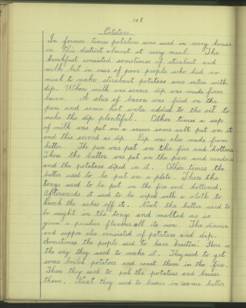 Potatoes
In former times potatoes were used in every house
in this district almost at every meal. The
breakfast consisted sometimes of stirabout and
milk but in case of poor people who had no
milk to make stirabout potatoes were eaten with
dip. When milk was scarce dip was made from
bacon. A slice of bacon was fried on the
pan and some hot water added to the fat to
make the dip plentiful. Other times a sup
of milk was put on a some salt put on it
and this served as dip. Dip was also made from
butter. The pan was put on the fire and
Then the butter was put on the pan and
and the potatoes dipped in it. Other times the
butter used to be put on a plate. Then the
tongs used to be put in the fire and
Afterwards it used to be wiped with a cloth to
knock the ashes off it. Next the butter used to
be caught in the tongs and melted as it
gives a peculiar flavour to it. The dinner
and supper also consisted of potatoes and dip.
Sometimes the people used to have This is
the way they used to make it. They used to get
some potatoes and roast them in the fire.
Then they used to peel the potatoes and
them. Next they used to some butter